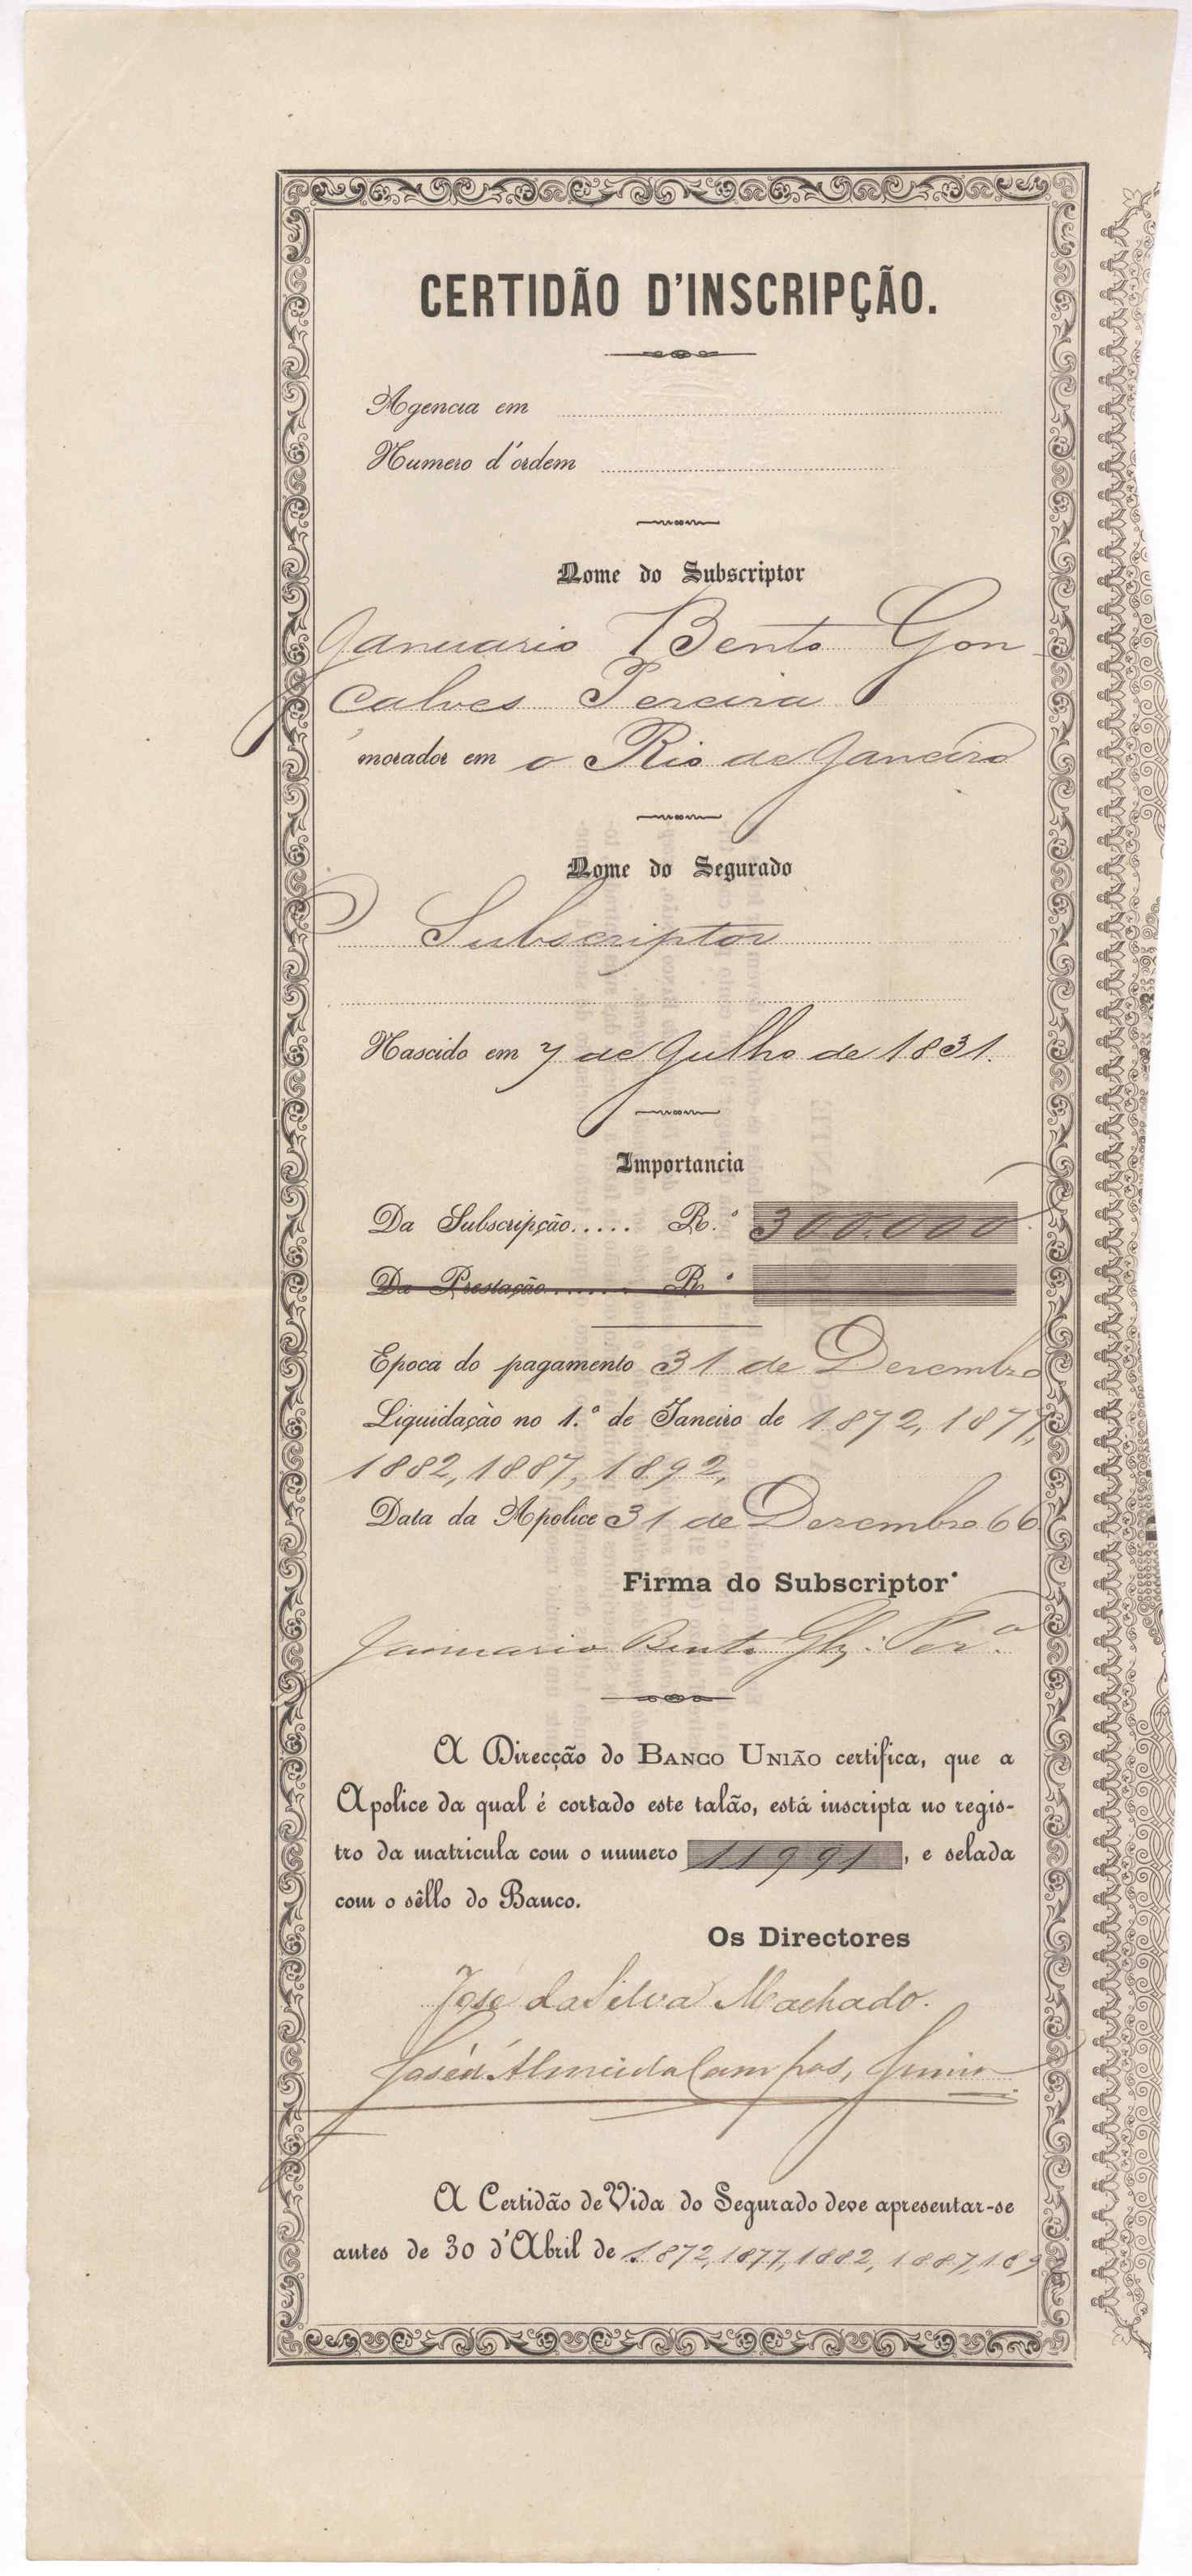 CERTIDÃO D'INSCRIPÇÃO.
Agencia em
Numero d'ordem
Nome do Subscriptor
Januario Bento Gon-
çalves Pereira
morador em o Rio de Janeiro
Nome do Segurado
O Subscriptor
Nascido em 7 de Julho de 1831.
Importancia
Da Subscripção..... R.ˢ 300.000
Da Prestação...... R.ˢ
Epoca do pagamento 31 de Dezembro
Liquidação no 1.º de Janeiro de 1872, 1877,
1882, 1887, 1892,
Data da Apolice 31 de Dezembro 66
Firma do Subscriptor
Januario Bento Glz: Per.ª
A Direcção do BANCO UNIÃO certifica, que a
Apolice da qual é cortado este talão, está inscripta no regis-
tro da matricula com o numero 11991, e selada
com o sêllo do Banco.
Os Directores
José da Silva Machado.
José d'Almeida Campos, Junior
A Certidão de Vida do Segurado deve apresentar-se
antes de 30 d'Abril de 1872, 1877, 1882, 1887, 189